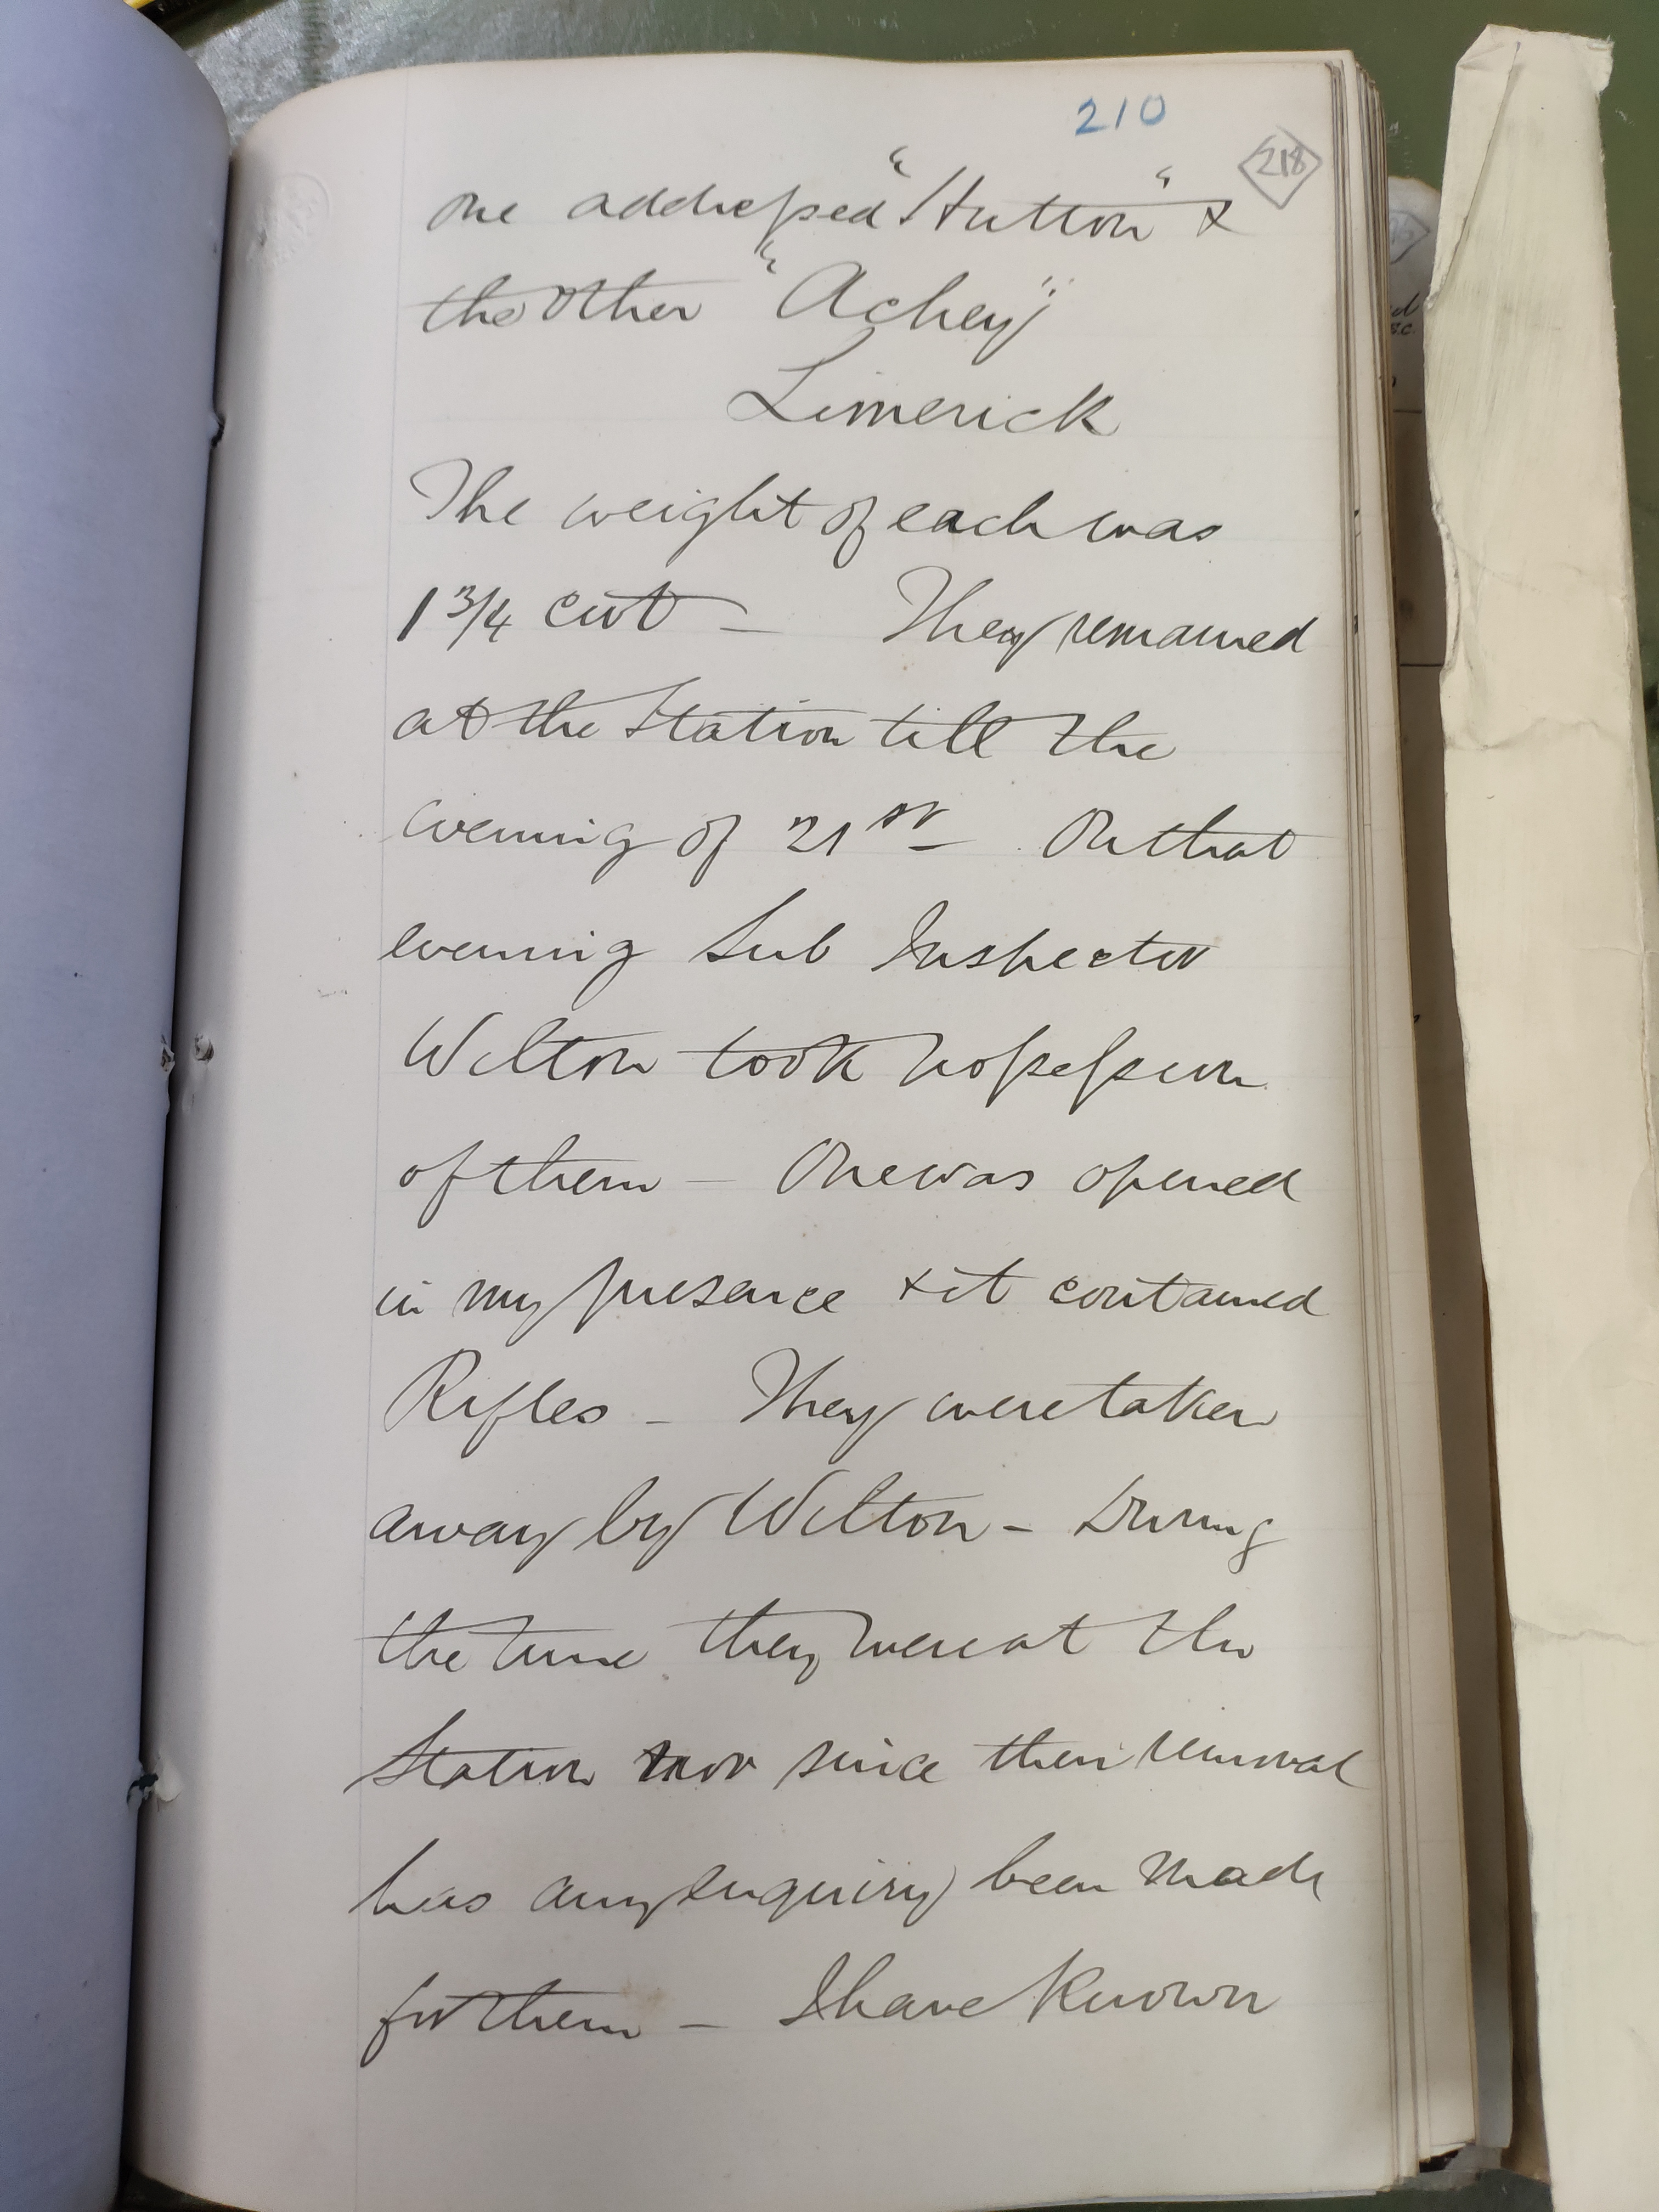 210
218
one addressed "Hutton" &
the other "Achey"
Limerick
The weight of each was
1 3/4 cwt – They remained
at the Station till the
evening of 21st – On that
evening Sub Inspector
Wilton took possession
of them – One was opened
in my presence & it contained
Rifles – They were taken
away by Wilton – During
the time they were at the
Station nor since their removal
has any enquiry been made
for them – I have known